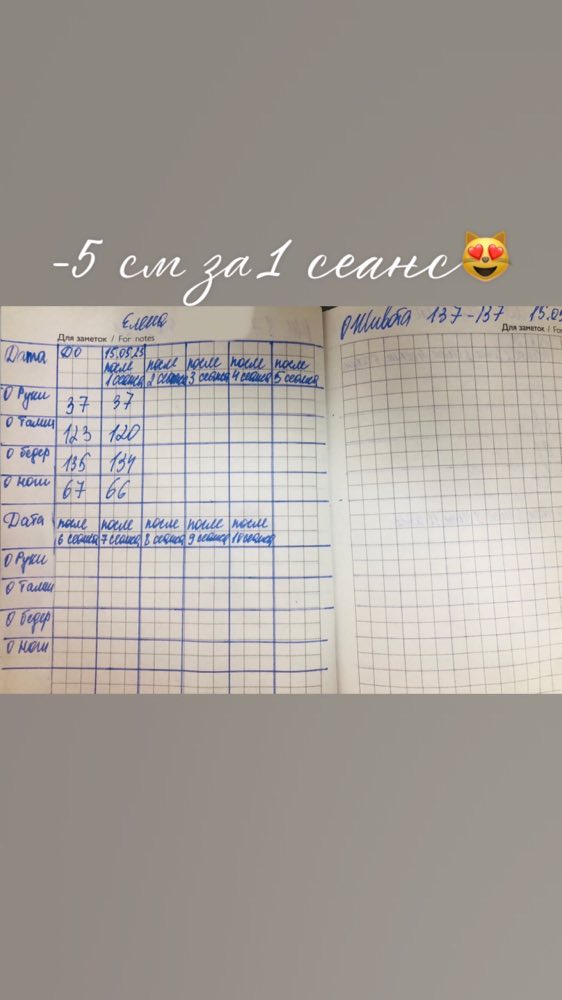 -5 см за 1 сеанс😻
Елена
Для заметок / For notes
Дата ДО 15.05.23 после 1 сеанса после 2 сеанса после 3 сеанса после 4 сеанса после 5 сеанса
О Руки 37 37
О талии 123 120
О бедер 135 134
О ноги 67 66
Дата после 6 сеанса после 7 сеанса после 8 сеанса после 9 сеанса после 10 сеанса
О Руки
О талии
О бедер
О ноги
О живота 137-137 15.05
Для заметок / For